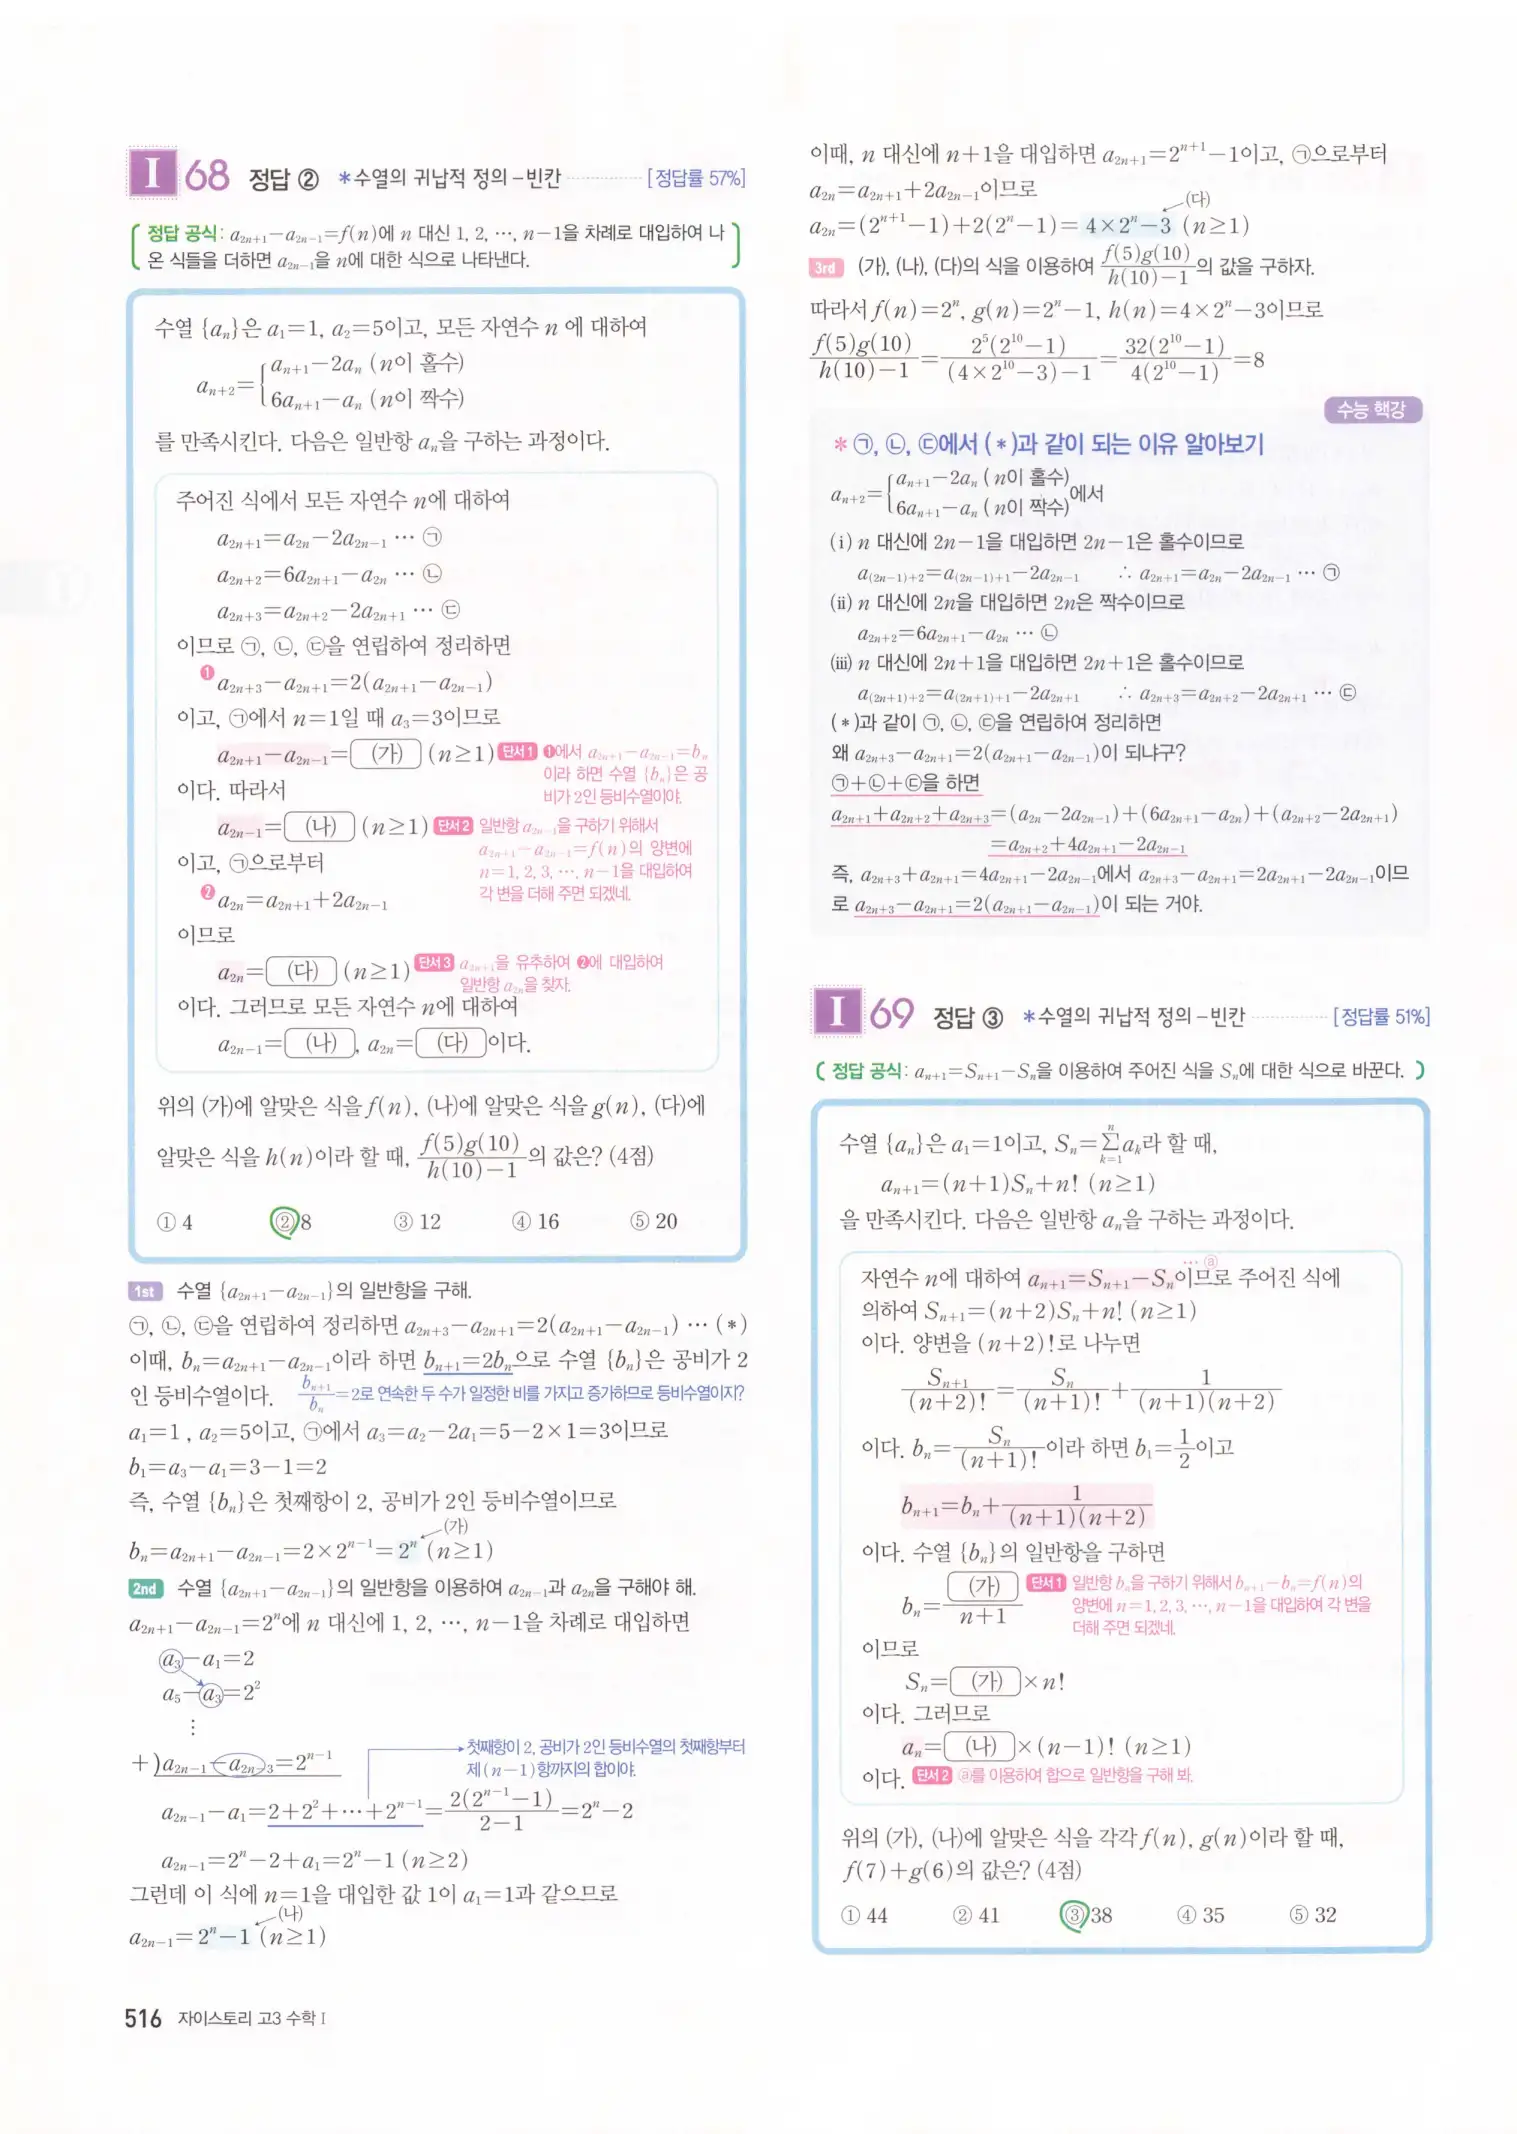 I 68 정답 ② *수열의 귀납적 정의-빈칸 ············ [정답률 57%]
정답 공식: a_{2n+1}-a_{2n-1}=f(n)에 n 대신 1, 2, ⋯, n-1을 차례로 대입하여 나
온 식들을 더하면 a_{2n-1}을 n에 대한 식으로 나타낸다.
수열 {a_n}은 a_1=1, a_2=5이고, 모든 자연수 n에 대하여
a_{n+2}={ a_{n+1}-2a_n (n이 홀수)
6a_{n+1}-a_n (n이 짝수)
를 만족시킨다. 다음은 일반항 a_n을 구하는 과정이다.
주어진 식에서 모든 자연수 n에 대하여
a_{2n+1}=a_{2n}-2a_{2n-1} ⋯ ㉠
a_{2n+2}=6a_{2n+1}-a_{2n} ⋯ ㉡
a_{2n+3}=a_{2n+2}-2a_{2n+1} ⋯ ㉢
이므로 ㉠, ㉡, ㉢을 연립하여 정리하면
❶ a_{2n+3}-a_{2n+1}=2(a_{2n+1}-a_{2n-1})
이고, ㉠에서 n=1일 때 a_3=3이므로
a_{2n+1}-a_{2n-1}= (가) (n≥1) 단서1 ❶에서 a_{2n+1}-a_{2n-1}=b_n
이라 하면 수열 {b_n}은 공
비가 2인 등비수열이야.
이다. 따라서
a_{2n-1}= (나) (n≥1) 단서2 일반항 a_{2n-1}을 구하기 위해서
a_{2n+1}-a_{2n-1}=f(n)의 양변에
n=1, 2, 3, ⋯, n-1을 대입하여
각 변을 더해 주면 되겠네.
이고, ㉠으로부터
❷ a_{2n}=a_{2n+1}+2a_{2n-1}
이므로
a_{2n}= (다) (n≥1) 단서3 a_{2n+1}을 유추하여 ❷에 대입하여
일반항 a_{2n}을 찾자.
이다. 그러므로 모든 자연수 n에 대하여
a_{2n-1}= (나) , a_{2n}= (다) 이다.
위의 (가)에 알맞은 식을 f(n), (나)에 알맞은 식을 g(n), (다)에
알맞은 식을 h(n)이라 할 때, f(5)g(10)/(h(10)-1)의 값은? (4점)
① 4 ② 8 ③ 12 ④ 16 ⑤ 20
1st 수열 {a_{2n+1}-a_{2n-1}}의 일반항을 구해.
㉠, ㉡, ㉢을 연립하여 정리하면 a_{2n+3}-a_{2n+1}=2(a_{2n+1}-a_{2n-1}) ⋯ (*)
이때, b_n=a_{2n+1}-a_{2n-1}이라 하면 b_{n+1}=2b_n으로 수열 {b_n}은 공비가 2
인 등비수열이다. b_{n+1}/b_n=2로 연속한 두 수가 일정한 비를 가지고 증가하므로 등비수열이지?
a_1=1, a_2=5이고, ㉠에서 a_3=a_2-2a_1=5-2×1=3이므로
b_1=a_3-a_1=3-1=2
즉, 수열 {b_n}은 첫째항이 2, 공비가 2인 등비수열이므로
(가)
b_n=a_{2n+1}-a_{2n-1}=2×2^{n-1}=2^n (n≥1)
2nd 수열 {a_{2n+1}-a_{2n-1}}의 일반항을 이용하여 a_{2n-1}과 a_{2n}을 구해야 해.
a_{2n+1}-a_{2n-1}=2^n에 n 대신에 1, 2, ⋯, n-1을 차례로 대입하면
a_3-a_1=2
a_5-a_3=2^2
⋮
+)a_{2n-1}-a_{2n-3}=2^{n-1}
첫째항이 2, 공비가 2인 등비수열의 첫째항부터
제(n-1)항까지의 합이야.
a_{2n-1}-a_1=2+2^2+⋯+2^{n-1}=2(2^{n-1}-1)/(2-1)=2^n-2
a_{2n-1}=2^n-2+a_1=2^n-1 (n≥2)
그런데 이 식에 n=1을 대입한 값 1이 a_1=1과 같으므로
(나)
a_{2n-1}=2^n-1 (n≥1)
516 자이스토리 고3 수학 I
이때, n 대신에 n+1을 대입하면 a_{2n+1}=2^{n+1}-1이고, ㉠으로부터
a_{2n}=a_{2n+1}+2a_{2n-1}이므로
(다)
a_{2n}=(2^{n+1}-1)+2(2^n-1)=4×2^n-3 (n≥1)
3rd (가), (나), (다)의 식을 이용하여 f(5)g(10)/(h(10)-1)의 값을 구하자.
따라서 f(n)=2^n, g(n)=2^n-1, h(n)=4×2^n-3이므로
f(5)g(10)/(h(10)-1)=2^5(2^{10}-1)/((4×2^{10}-3)-1)=32(2^{10}-1)/(4(2^{10}-1))=8
수능 핵강
*㉠, ㉡, ㉢에서 (*)과 같이 되는 이유 알아보기
a_{n+2}={ a_{n+1}-2a_n (n이 홀수)
6a_{n+1}-a_n (n이 짝수) 에서
(i) n 대신에 2n-1을 대입하면 2n-1은 홀수이므로
a_{(2n-1)+2}=a_{(2n-1)+1}-2a_{2n-1} ∴ a_{2n+1}=a_{2n}-2a_{2n-1} ⋯ ㉠
(ii) n 대신에 2n을 대입하면 2n은 짝수이므로
a_{2n+2}=6a_{2n+1}-a_{2n} ⋯ ㉡
(iii) n 대신에 2n+1을 대입하면 2n+1은 홀수이므로
a_{(2n+1)+2}=a_{(2n+1)+1}-2a_{2n+1} ∴ a_{2n+3}=a_{2n+2}-2a_{2n+1} ⋯ ㉢
(*)과 같이 ㉠, ㉡, ㉢을 연립하여 정리하면
왜 a_{2n+3}-a_{2n+1}=2(a_{2n+1}-a_{2n-1})이 되냐구?
㉠+㉡+㉢을 하면
a_{2n+1}+a_{2n+2}+a_{2n+3}=(a_{2n}-2a_{2n-1})+(6a_{2n+1}-a_{2n})+(a_{2n+2}-2a_{2n+1})
=a_{2n+2}+4a_{2n+1}-2a_{2n-1}
즉, a_{2n+3}+a_{2n+1}=4a_{2n+1}-2a_{2n-1}에서 a_{2n+3}-a_{2n+1}=2a_{2n+1}-2a_{2n-1}이므
로 a_{2n+3}-a_{2n+1}=2(a_{2n+1}-a_{2n-1})이 되는 거야.
I 69 정답 ③ *수열의 귀납적 정의-빈칸 ············ [정답률 51%]
정답 공식: a_{n+1}=S_{n+1}-S_n을 이용하여 주어진 식을 S_n에 대한 식으로 바꾼다.
수열 {a_n}은 a_1=1이고, S_n=∑_{k=1}^{n} a_k라 할 때,
a_{n+1}=(n+1)S_n+n! (n≥1)
을 만족시킨다. 다음은 일반항 a_n을 구하는 과정이다.
⋯ ⓐ
자연수 n에 대하여 a_{n+1}=S_{n+1}-S_n이므로 주어진 식에
의하여 S_{n+1}=(n+2)S_n+n! (n≥1)
이다. 양변을 (n+2)!로 나누면
S_{n+1}/(n+2)!=S_n/(n+1)!+1/((n+1)(n+2))
이다. b_n=S_n/(n+1)!이라 하면 b_1=1/2이고
b_{n+1}=b_n+1/((n+1)(n+2))
이다. 수열 {b_n}의 일반항을 구하면
b_n= (가) /(n+1) 단서1 일반항 b_n을 구하기 위해서 b_{n+1}-b_n=f(n)의
양변에 n=1, 2, 3, ⋯, n-1을 대입하여 각 변을
더해 주면 되겠네.
이므로
S_n= (가) ×n!
이다. 그러므로
a_n= (나) ×(n-1)! (n≥1)
이다. 단서2 ⓐ를 이용하여 합으로 일반항을 구해 봐.
위의 (가), (나)에 알맞은 식을 각각 f(n), g(n)이라 할 때,
f(7)+g(6)의 값은? (4점)
① 44 ② 41 ③ 38 ④ 35 ⑤ 32